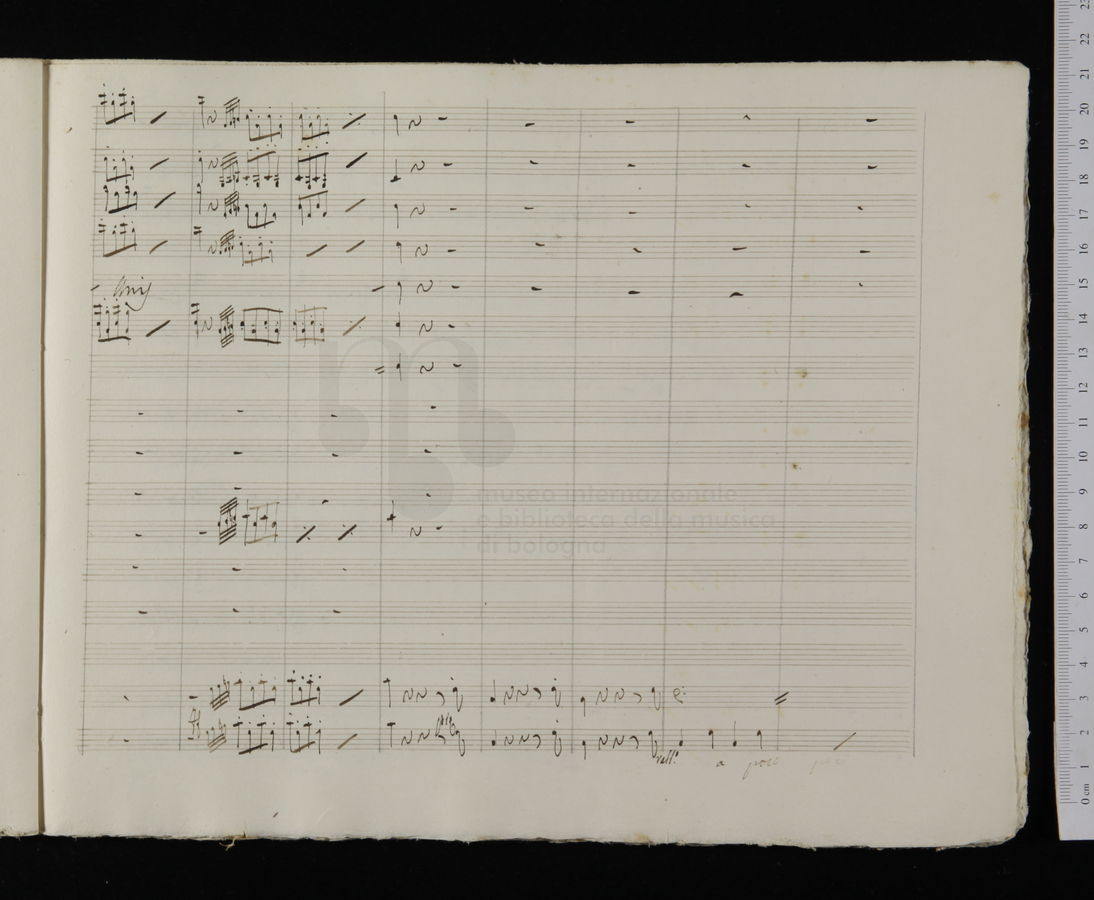 Unis
museo internazionale
e biblioteca della musica
di bologna
rall: a poco poco
23
22
21
20
19
18
17
16
15
14
13
12
11
10
9
8
7
6
5
4
3
2
1
0 cm